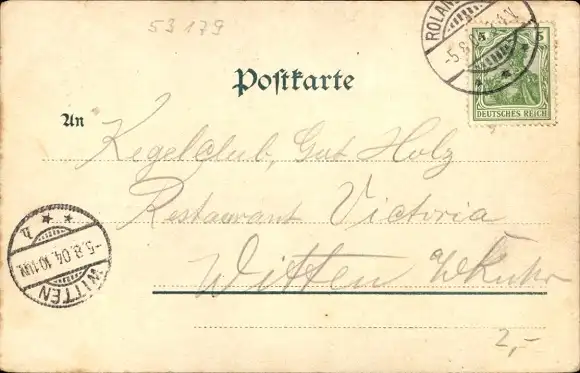 53179
ROLAN
-5.8.
5 5
DEUTSCHES REICH
Postkarte
An
Kegelclub, Gut Holz
Restaurant Victoria
Witten a/d Ruhr
WITTEN
-5.8.04.10-11N
* * h
2,-